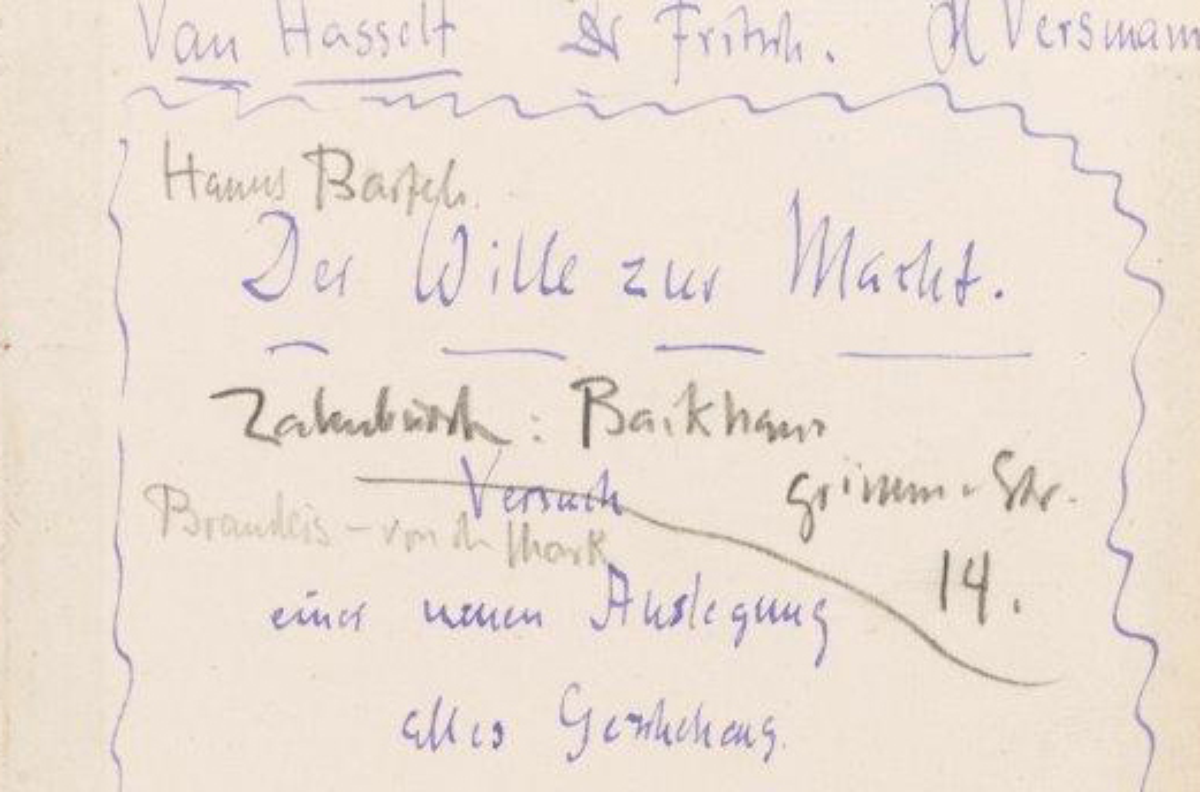 Van Hasselt Dr Fritsch. H Versmann
Hanns Bartsch.
Der Wille zur Macht.
Zahnbürste: Backhaus
Grimm. Str.
14.
Versuch
Brandeis - von der Mark
einer neuen Auslegung
alles Geschehens.